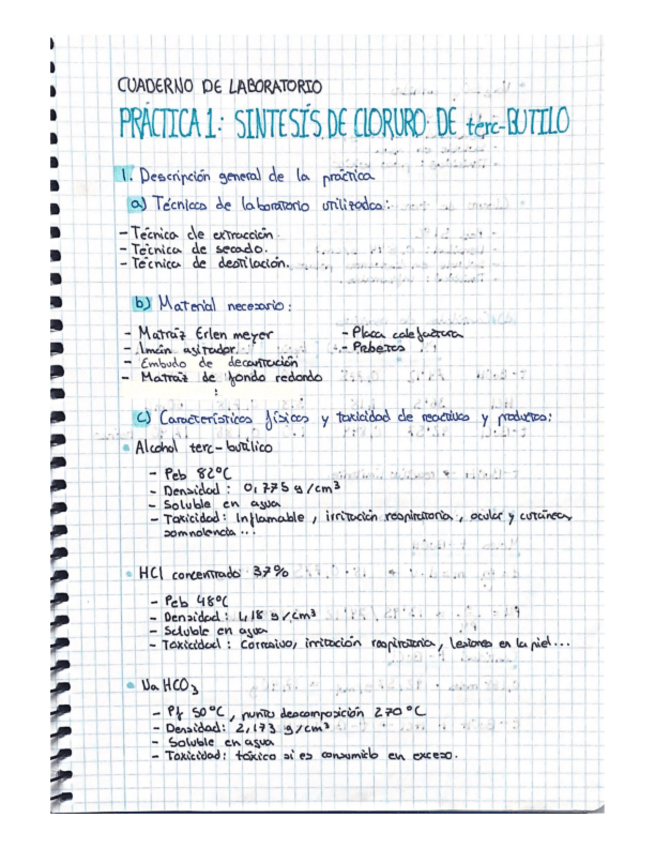 CUADERNO DE LABORATORIO
PRÁCTICA 1: SINTESÍS DE CLORURO DE terc-BUTILO
1. Descripción general de la práctica
a) Técnicas de laboratorio utilizadas:
- Técnica de extracción.
- Técnica de secado.
- Técnica de destilación.
b) Material necesario:
- Matraz Erlen meyer
- Placa calefactora
- Imán agitador
- Probetas
- Embudo de decantación
- Matraz de fondo redondo
:
c) Características físicas y toxicidad de reactivos y productos:
• Alcohol terc-butílico
- Peb 82ºC
- Densidad: 0,775 g/cm³
- Soluble en agua
- Toxicidad: Inflamable, irritación respiratoria, ocular y cutánea,
somnolencia...
• HCl concentrado 37%
- Peb 48ºC
- Densidad: 1,18 g/cm³
- Soluble en agua
- Toxicidad: Corrosivo, irritación respiratoria, lesiones en la piel...
• NaHCO₃
- Pf 50ºC, punto descomposición 270ºC
- Densidad: 2,173 g/cm³
- Soluble en agua
- Toxicidad: tóxico si es consumido en exceso.